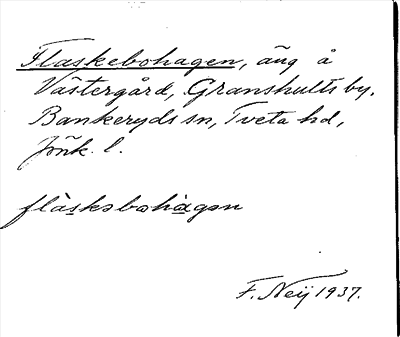 Flaskebohagen, äng å
Västergård, Granshults by.
Bankeryds sn, Tveta hd,
Jönk. l.
flàskəbohàgən
F. Neij 1937.